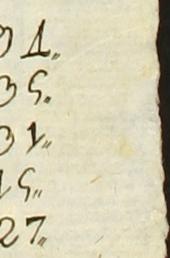 31,,
35,,
31,,
15,,
27,,